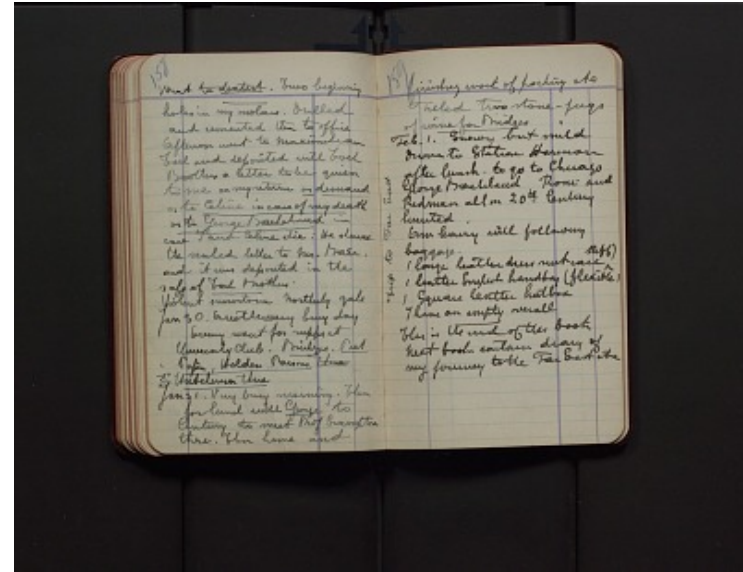 158
Went to dentist. Two beginning
holes in my molars. Drilled
and cemented then to office
Afternoon went to Maximilian
Toch and deposited with Toch
Brothers a letter to be given
to me on my return on demand
or to Celine in case of my death
or to George Barkland in
case I and Celine die. He
the sealed letter to
and it was deposited in the
safe of Toch Brothers.
Violent snowstorm Northerly gale
Jan 30. busy day
Evening went for supper at
University Club. Bridges.
Pope, Holden
Jan 31. Very busy morning. Then
for lunch with George to
Century to meet Prof
there. Then home and
159
finishing work of packing etc
Filled two stone-jugs
of wine for Bridges
Feb. 1. Snowy but mild
Drove to Station Harmon
after lunch to go to Chicago
George Rossi and
Redman all on 20th Century
limited.
Am carry with following
baggage.
1 large leather dress suit case (stiff)
1 leather English handbag (flexible)
1 Square leather hatbox
This is the end of this book
Next book contain diary of
my journey to the Far East etc
Trip to Far East